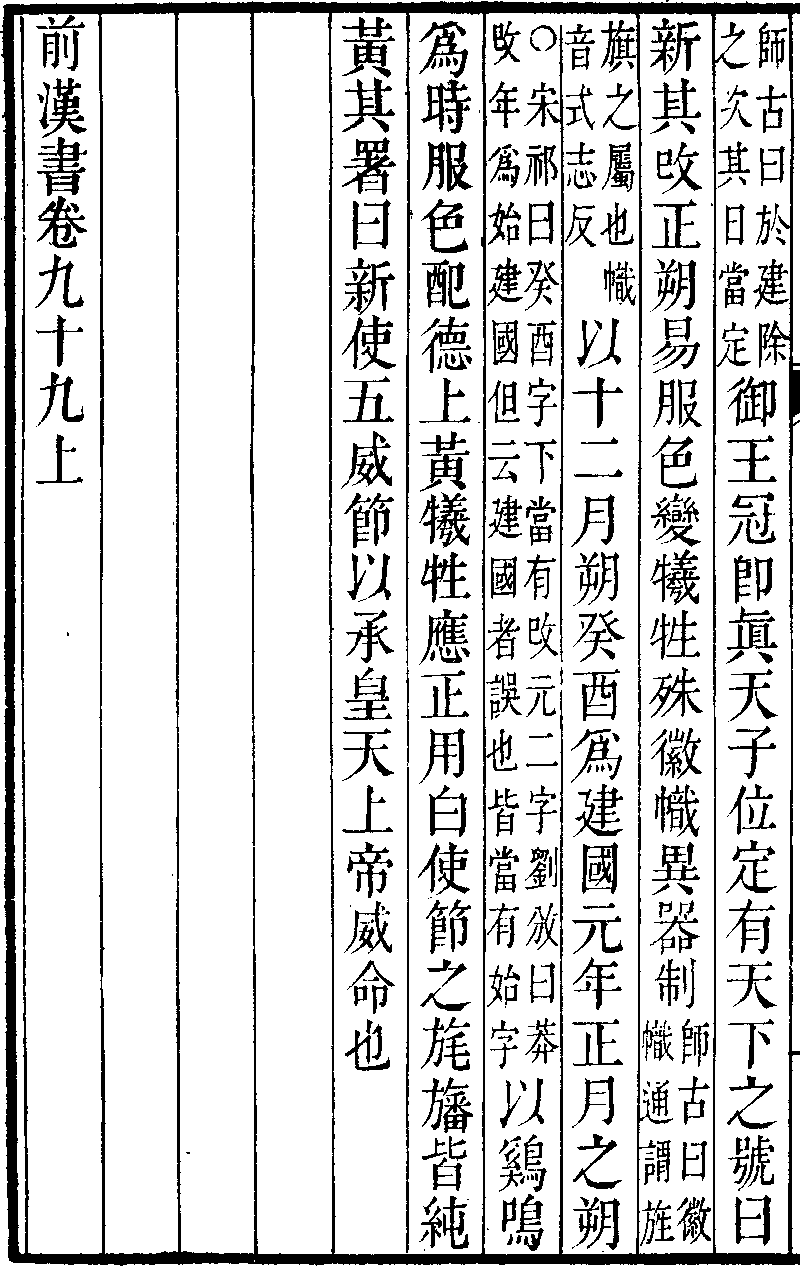 師古曰於建除之次其日當定御王冠卽眞天子位定有天下之號曰
新其攺正朔易服色變犧牲殊徽幟異器制師古曰徽幟通謂旌
旗之屬也幟音式志反以十二月朔癸酉爲建國元年正月之朔
○宋祁曰癸酉字下當有攺元二字劉攽曰莽攺年爲始建國但云建國者誤也皆當有始字以鷄鳴
爲時服色配德上黃犧牲應正用白使節之旄旛皆純
黃其署曰新使五威節以承皇天上帝威命也
前漢書卷九十九上